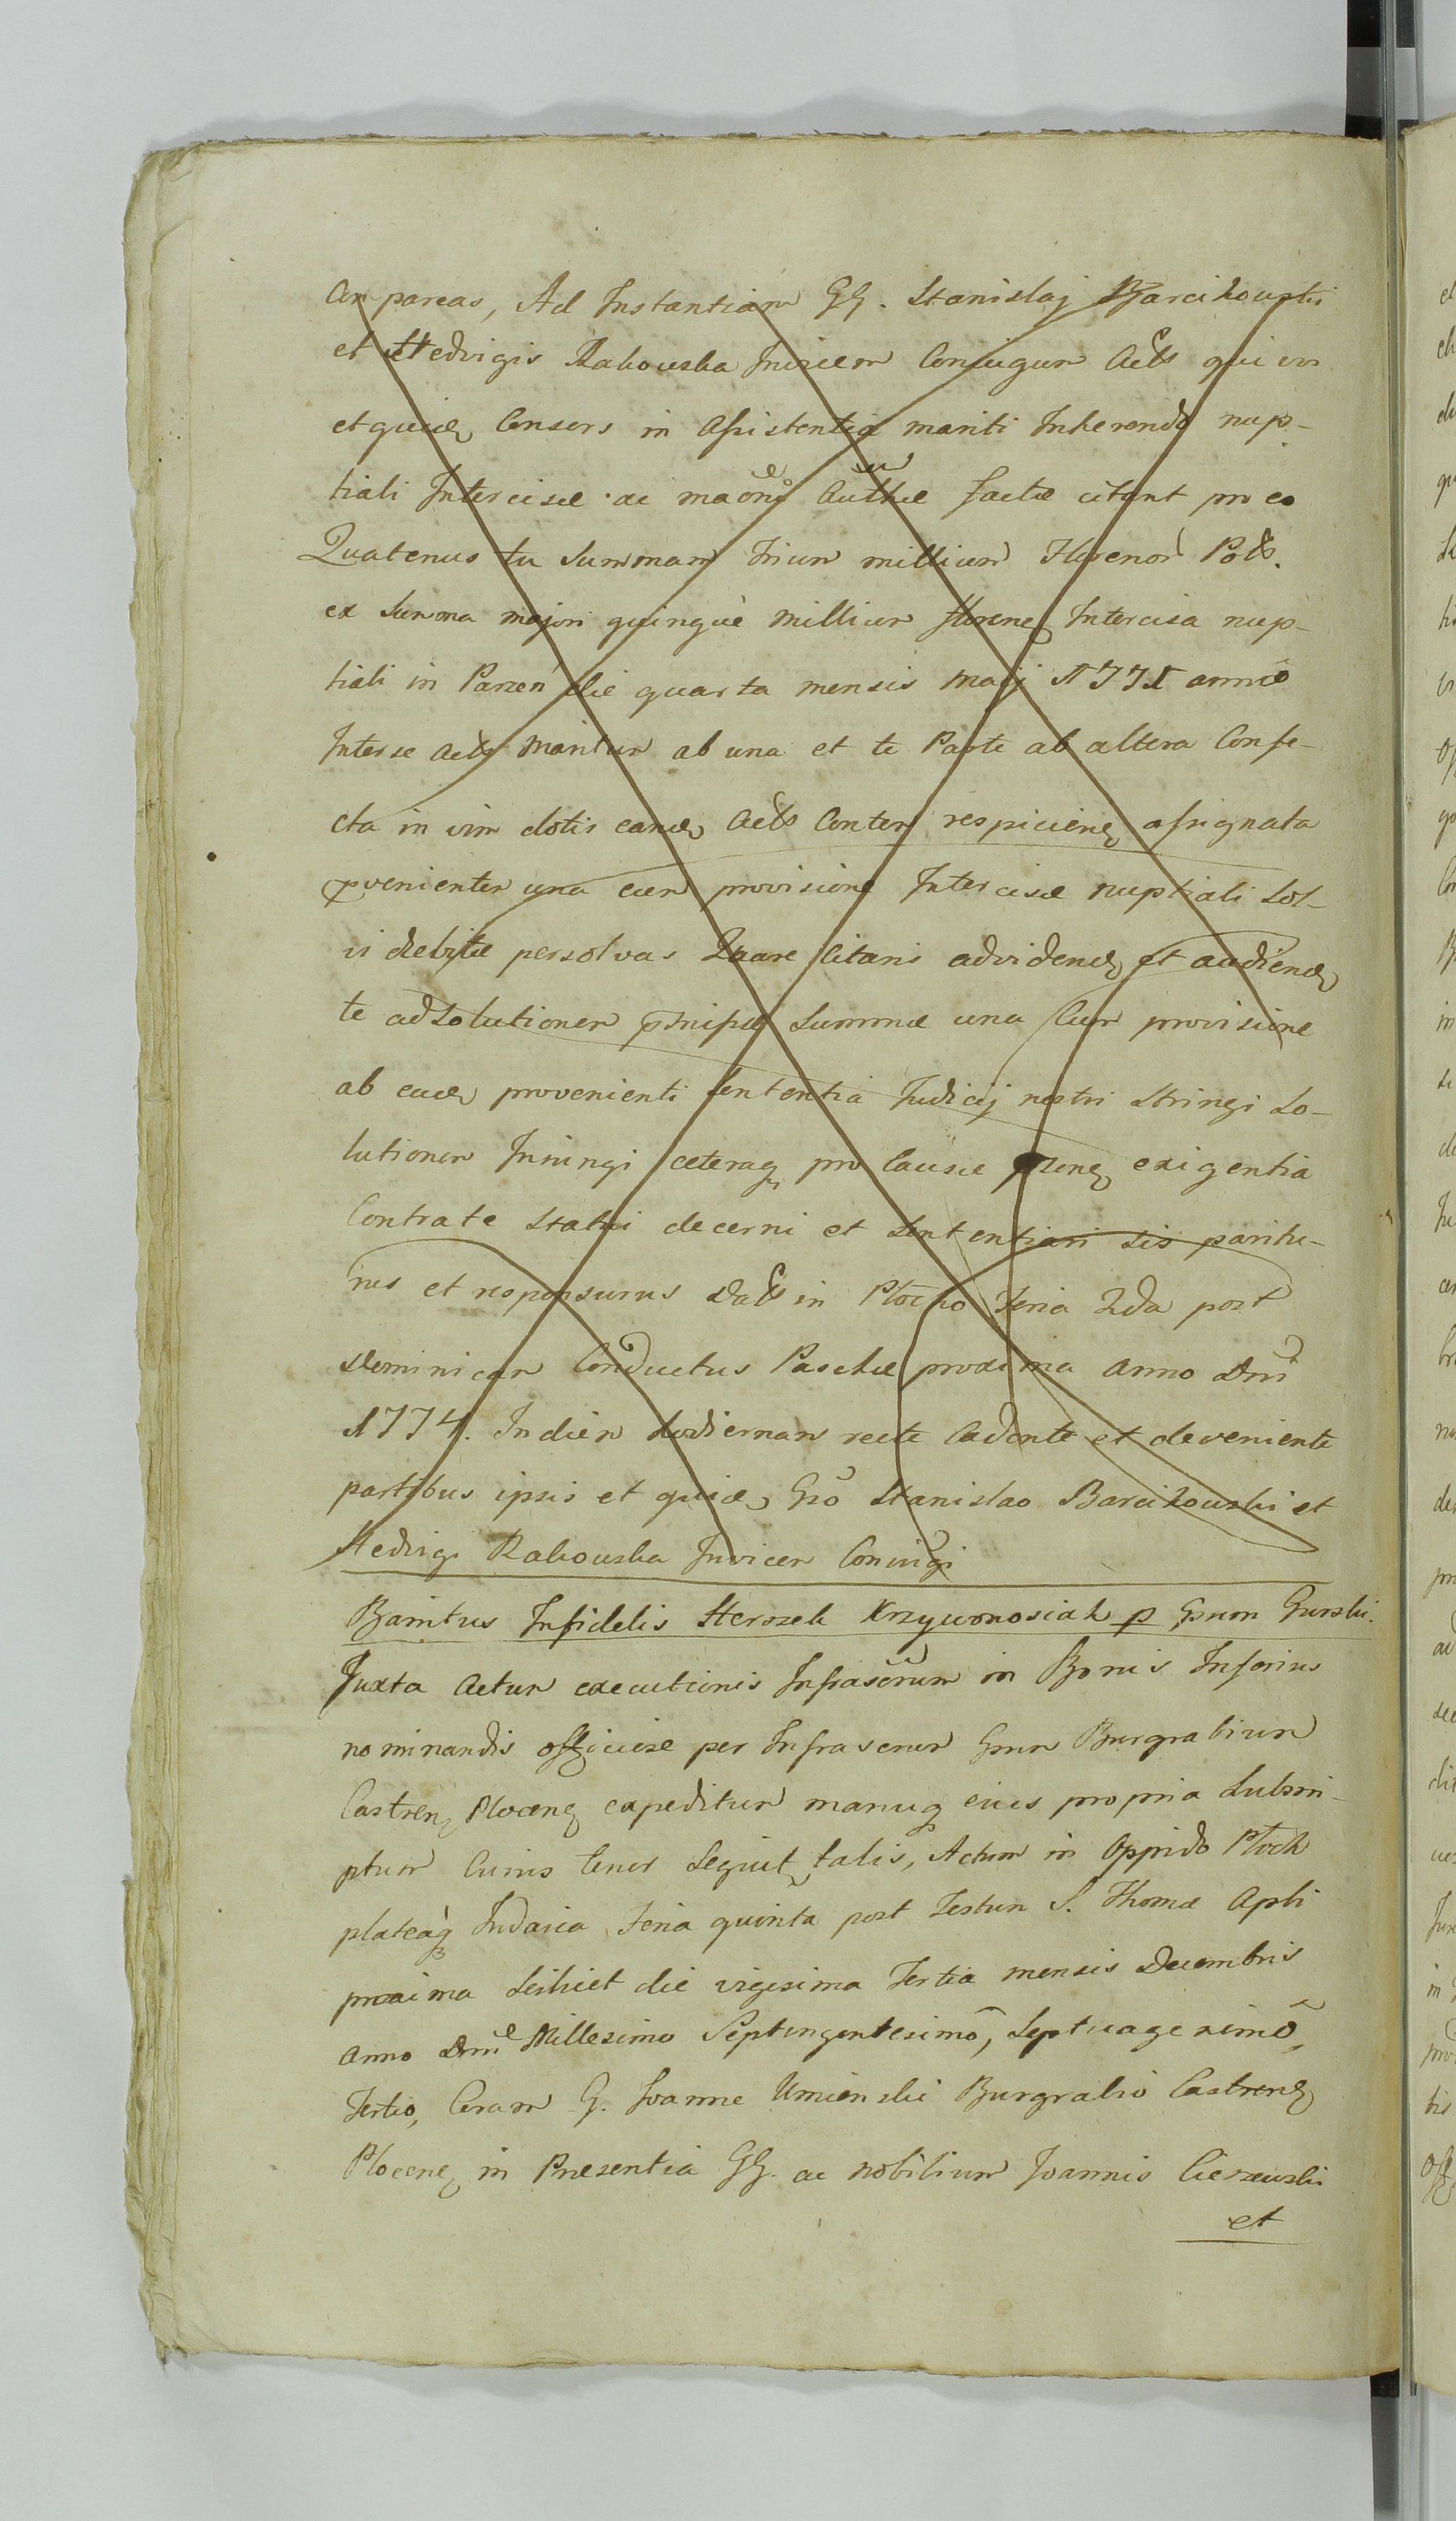 Com pareas, Ad Instantiam GG. Stanislaj Barcikowski
et Hedvigis Rakowska Invicem Conjugum Actt qui vir
et quidem Consors in Assistentia mariti Inherendo nup-
tiali Intercisæ ac maõne Authæ factæ citant pro eo
Quatenus tu Summam Trium millium Florenor Poll.
ex Summa majori quinque millium florenq Intercisa nup-
tiali in Parzen die quarta mensis Maij 1771 anno
Interse Actt Maritum ab una et te Parte ab altera Confe-
cta in vim dotis eand Actt Conten respicienq assignata
pvenienter una cum provisione Intercisæ nuptiali Sol-
vi debitæ persolvas Quare Citaris advidend et audiend
te adSolutionem pmissæ Summæ una Cum provisione
ab eade provenienti Sententia Judicij nostri Stringi So-
lutionem Iniungi ceteraq pro Causæ pnenq exigentia
Contrate Statui decerni et Sententiari sis paritu-
rus et responsurus Datt in Płocko Feria 2da post
Dominicam Conductus Paschæ proxima Anno Dni
1774. Indiem hodiernam recte Cadente et deveniente
partibus ipsis et quidem Gso Stanislao Barcikowski et
Hedvigi Rakowska Invicem Coniugi
Banitus Infidelis Herszek Krzywonosiak p Gsum Gurski.
Juxta Actum executionis Infrascrum in Bonis Inferius
nominandis officiose per Infrascrum Gsum Burgrabium
Castren Plocenq expeditum manuq eius propria Subscri-
ptum Cuius tenor Sequit talis, Actum in Oppido Płock
plateaq Judaica Feria quinta post Festum S. Thomæ Apli
proxima Scilicet die vigesima Tertia mensis Decembris
Anno Dni Millesimo Septingentesimo, Septuagesimo,
Tertio, Coram G. Joanne Umienski Burgrabio Castrenq
Plocenq in Præsentia GG. ac nobilium Joannis Cieszewski
et